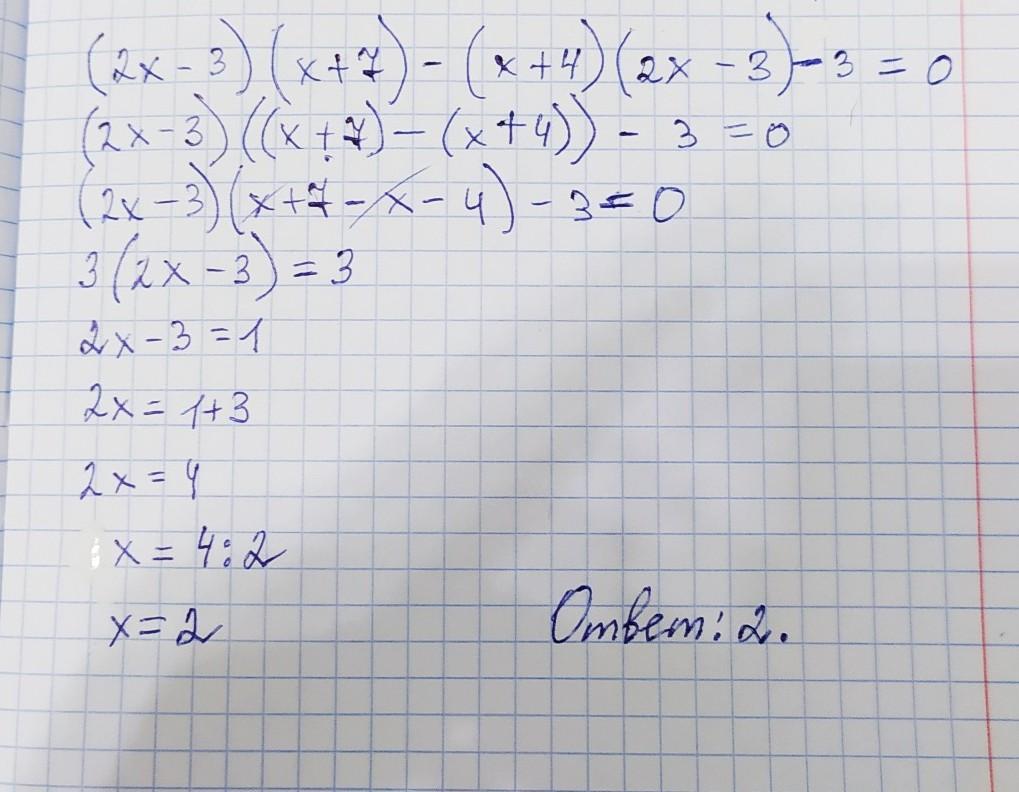 (2x-3)(x+7)-(x+4)(2x-3)-3=0
(2x-3)((x+7)-(x+4))-3=0
(2x-3)(x+7-x-4)-3=0
3(2x-3)=3
2x-3=1
2x=1+3
2x=4
x=4:2
x=2
Ответ: 2.